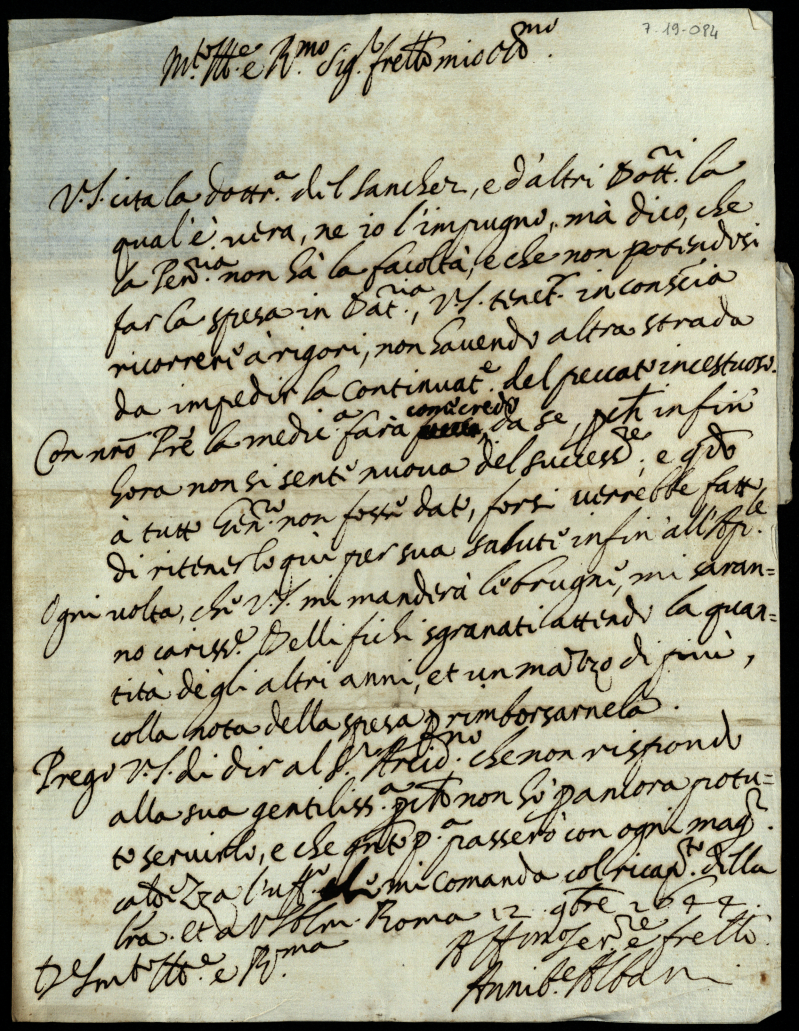 7-19-084
M.to Ill.e e R.mo Sig.r fr̃ello mio Oss.mo
V.S. cita la dottr.a del Sanchez, e d'altri Dott.ri la
qual'è vera, ne io l'impugno, mà dico, che
la Pen.ria non hà la facoltà, e che non potendosi
far la spesa in Dat.ria, V.S. tenet.r in conscia
ricorrere à rigori, non havendo altra strada
da impedir la continuat.e del peccato incestuoso.
Con nr̃o Pr̃e la medic.a farà come credo da se, pch infin
hora non si sente nuova del success.re, e qdo
à tutto Gen.ro non fosse dato, forsi verrebbe fatto
di ritenerlo qui per sua salute infin all'Ap.le
Ogni volta, che V.S. mi manderà le brugne, mi saran=
no cariss.e Delli fichi sgranati attendo la quan=
tità degli altri anni, et un mazzo di più,
colla nota della spesa p rimborsarnela.
Prego V.S. di dir al S.r Arcid.no che non rispondo
alla sua gentiliss.a pche non hò p ancora potu=
to servirlo, e che qnto p.a passerò con ogni mag.r
caldezza l'uff.o che mi comanda col ricap.to della
lr̃a. Et a V.S. Roma 12 9bre 1644.
D V.S. m.to Ill.e e R.ma
Aff.mo Ser.re e fr̃ello
Annib.e Albani